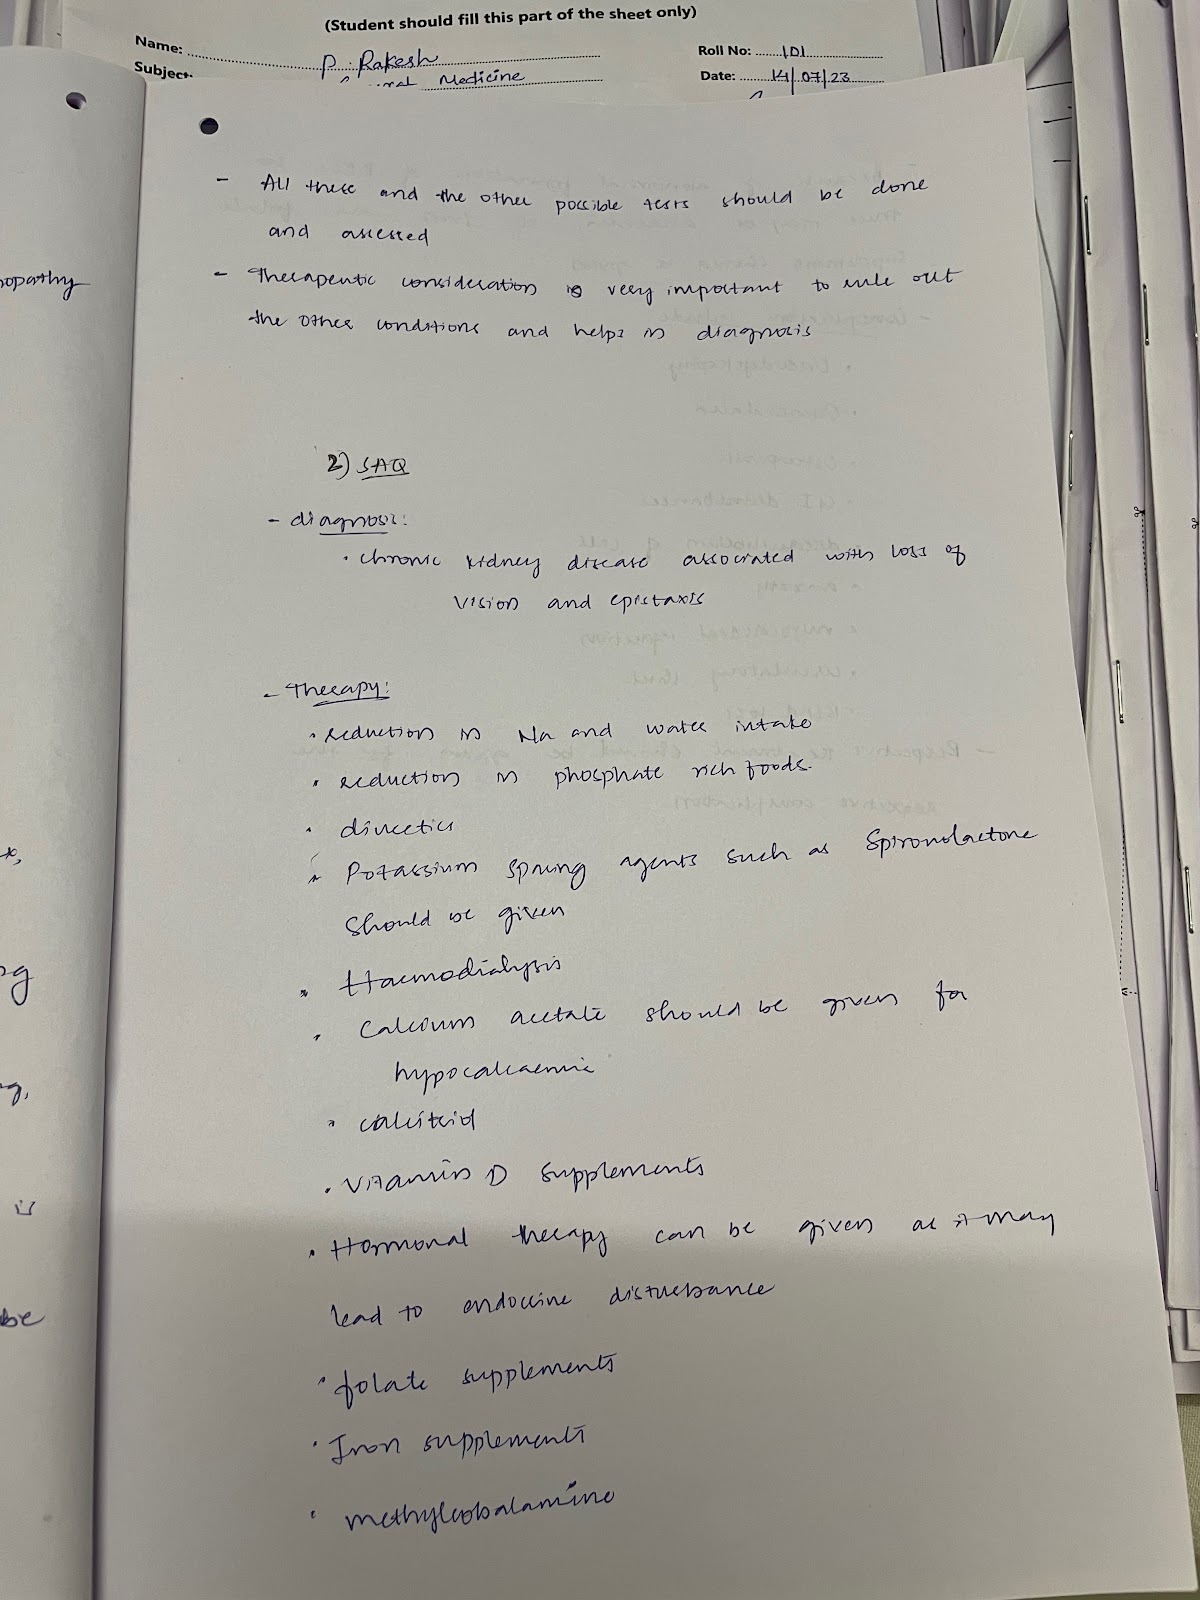 (Student should fill this part of the sheet only)
Name: P. Rakesh Roll No: 101
Subject: Medicine Date: 14/07/23
- All these and the other possible tests should be done
and assessed
- Therapeutic consideration is very important to rule out
the other conditions and helps in diagnosis
2) SAQ
- diagnosis:
• chronic kidney disease associated with loss of
vision and epistaxis
- Therapy:
• reduction in Na and water intake
• reduction in phosphate rich foods.
• diuretics
• Potassium spring agents such as Spironolactone
should be given
• Haemodialysis
• Calcium acetate should be given for
hypocalcaemic
• calcitriol
• Vitamin D supplements
• Hormonal therapy can be given as it may
lead to endocrine disturbance
• folate supplements
• Iron supplements
• methylcobalamine
opathy
ng
is
be